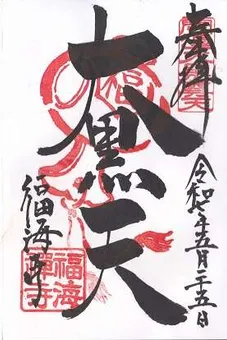 奉拝
大黒天
令和七年五月二十五日
福海寺
福海
禅寺